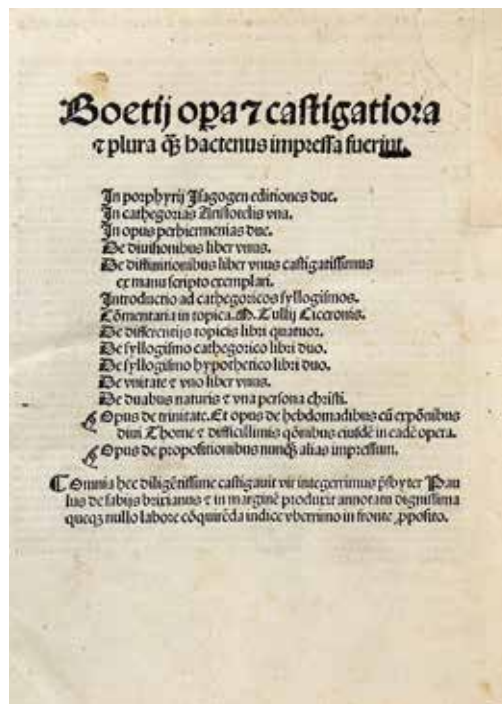 Boetij op̲a ⁊ castigatiora
⁊ plura q̄ꝫ hactenus impressa fuerint.
In porphyrij Isagogen editiones due.
In cathegorias Aristotelis vna.
In opus perhiermenias due.
De diuisionibus liber vnus.
De diffinitionibus liber vnus castigatissimus
ex manu scripto exemplari.
Introductio ad cathegoricos syllogismos.
Cōmentaria in topica. M. Tullij Ciceronis.
De differentijs topicis libri quatuor.
De syllogismo cathegorico libri duo.
De syllogismo hypothetico libri duo.
De vnitate ⁊ vno liber vnus.
De duabus naturis ⁊ vna persona christi.
Opus de trinitate. Et opus de hebdomadibus cū expōnibus
diui Thome ⁊ difficillimis qōnibus eiusdē in eadē opera.
Opus de propositionibus nunq̄ꝫ alias impressum.
Omnia hec diligētissime castigauit vir integerrimus p̄sbyter Pau
lus de fabijs brixianus ⁊ in marginē produxit annotatu dignissima
queqꝫ nullo labore cōquirēda indice vberrimo in fronte ꝓposito.